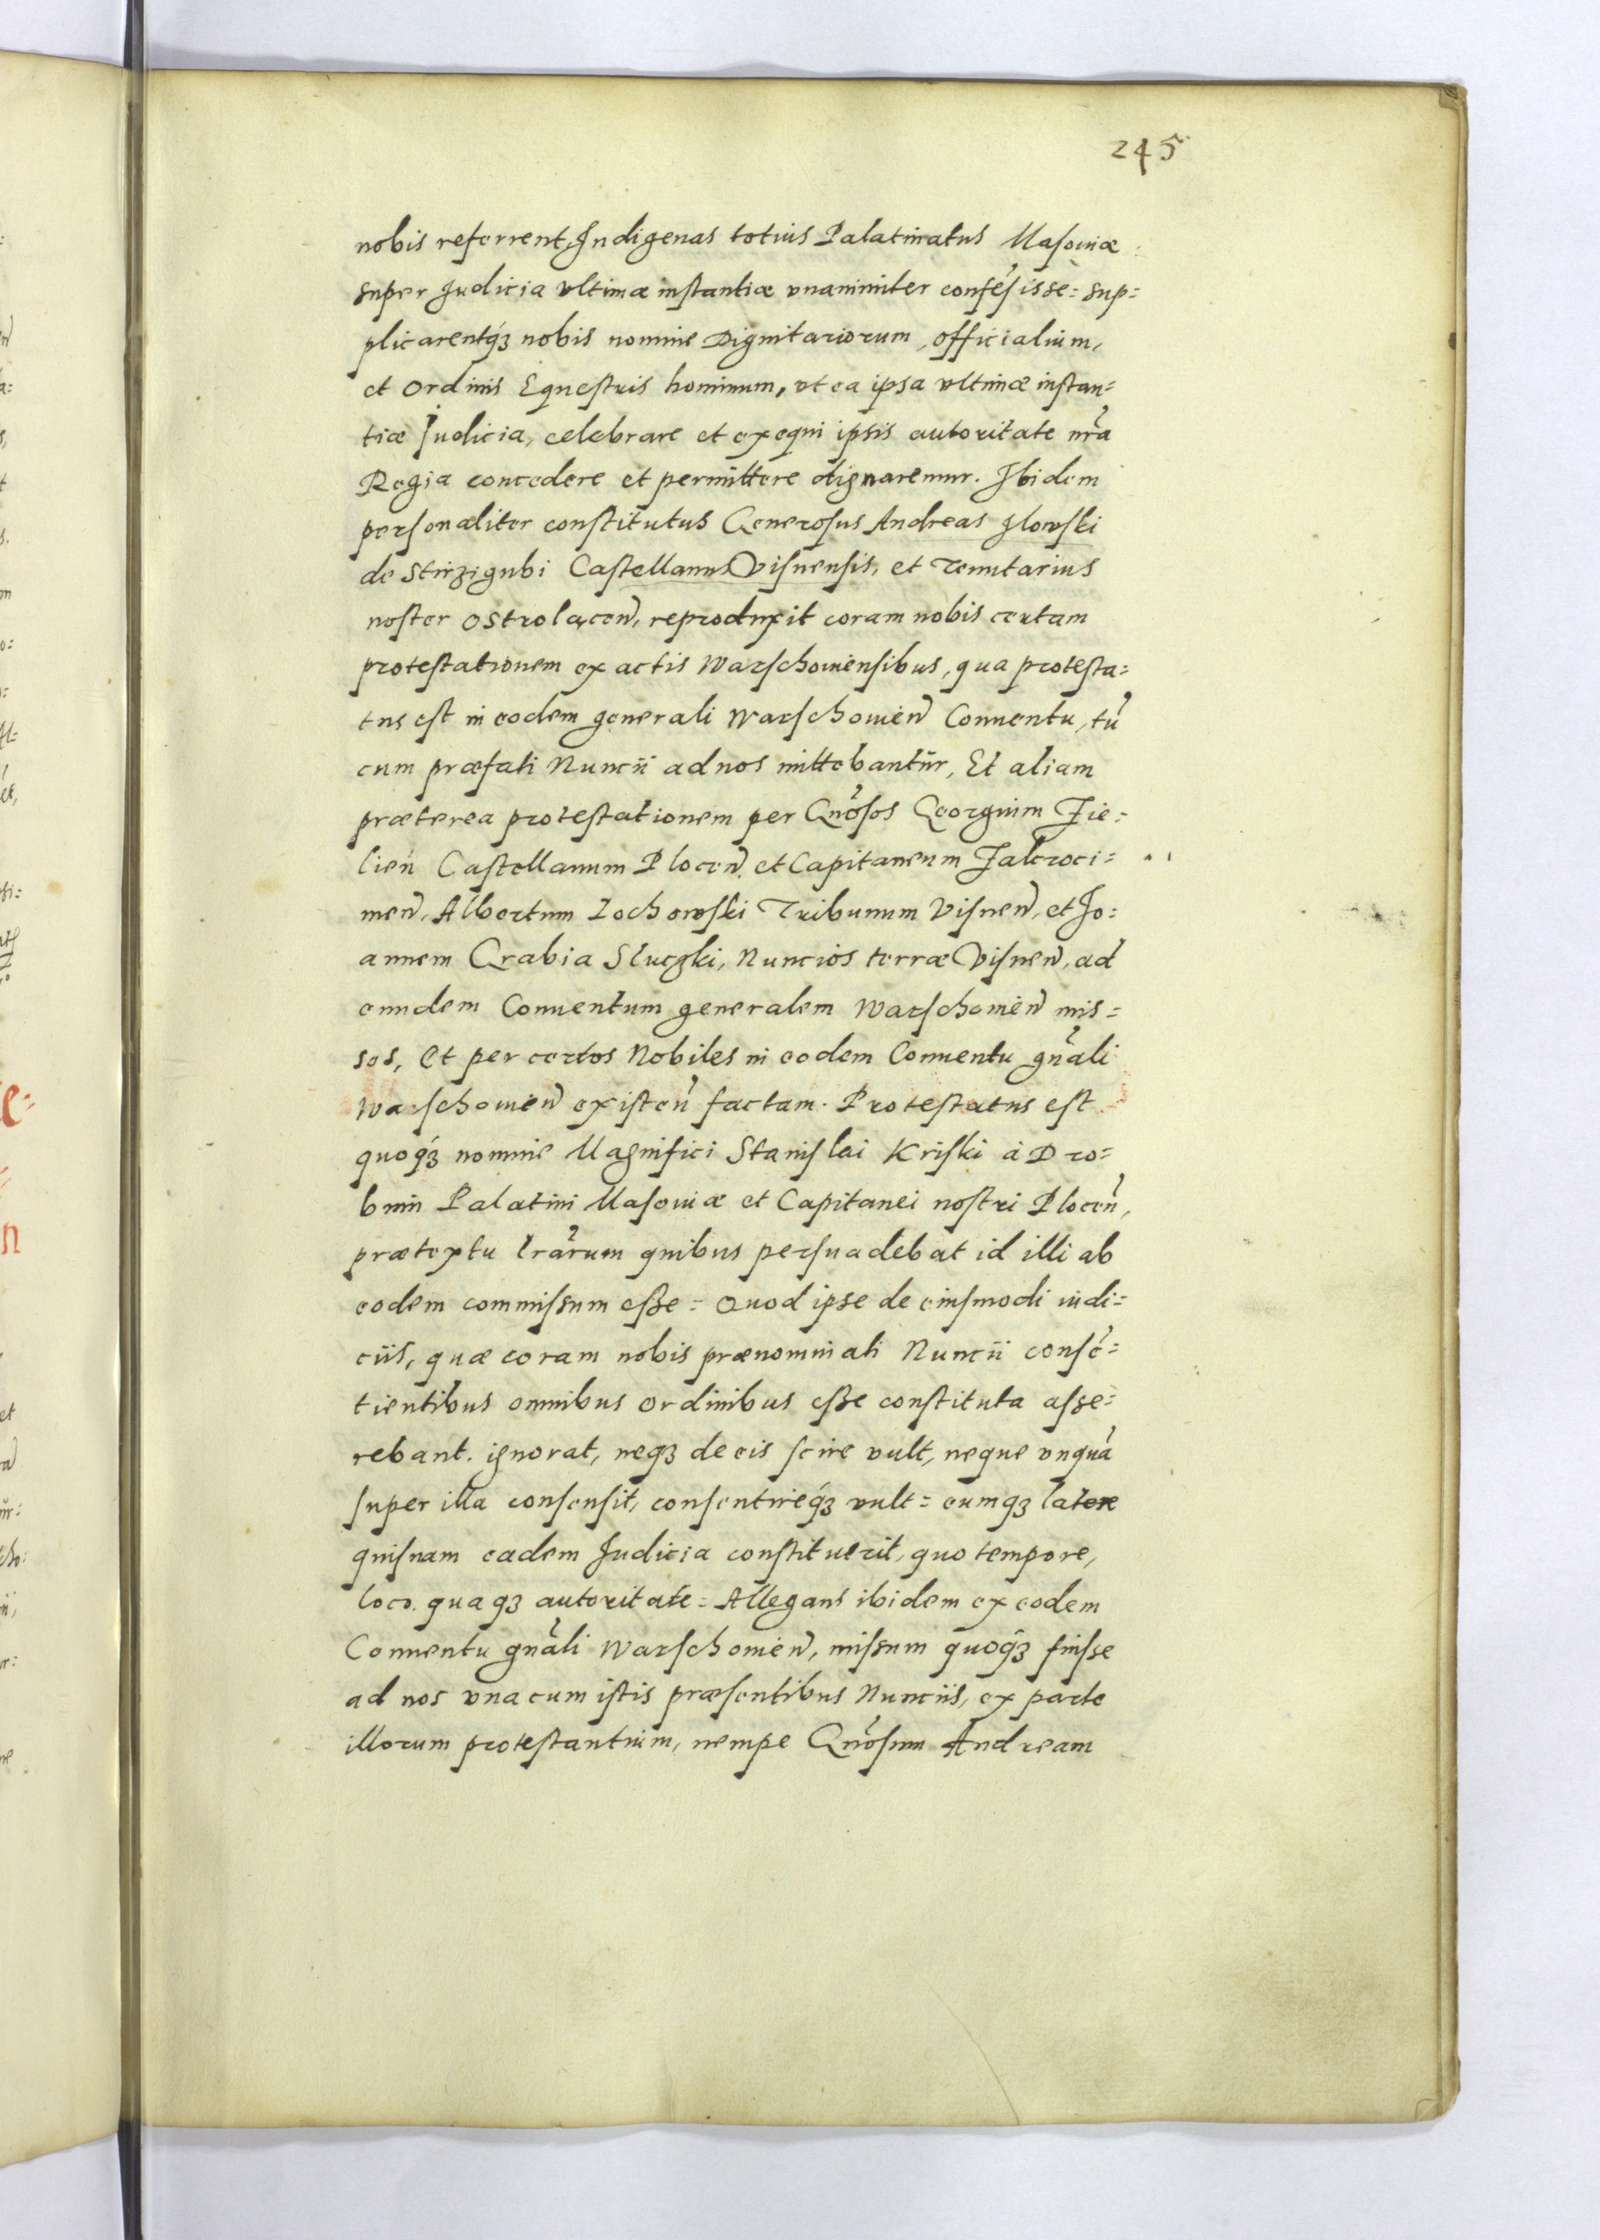 245
nobis referrent, Indigenas totius Palatinatus Masoviæ
super Judicia vltimæ instantiæ vnanimiter consẽsisse = sup=
plicarentq́ȝ nobis nomine Dignitariorum, officialium,
et Ordinis Equestris hominum, vt ea ipsa vltimæ instan=
tiæ Judicia, celebrare et exequi ipsis autoritate nr̃a
Regia concedere et permittere dignaremur. Ibidem
personaliter constitutus Generosus Andreas Ilowski
de Strzigubi Castellanus Visnensis, et Tenutarius
noster Ostrolącen̄, reproduxit coram nobis certam
protestationem ex actis Warschouiensibus, qua protesta=
tus est in eodem generali Warschouien̄ Conuentu, tũ
cum præfati Nuncii ad nos mittebantur, Et aliam
præterea protestationem per Gñosos Georgium Zie=
lien̄ Castellanum Plocen̄ et Capitaneum Zakroci=
men̄, Albertum Zochowski Tribunum Visnen̄, et Jo=
annem Grabia Slucgki, Nuncios terræ Visnen̄, ad
eundem Conuentum generalem Warschouien̄ mis=
sos, et per certos Nobiles in eodem Conuentu gñali
Warschouien̄ existen̄ factam. Protestatus est
quoq́ȝ nomine Magnifici Stanislai Kriski à Dro=
bnin Palatini Masouiæ et Capitanei nostri Plocen̄,
prætextu lr̃arum quibus persuadebat id illi ab
eodem commissum esse = Quod ipse de eiusmodi iudi=
ciis, quæ coram nobis prænominati Nuncii consẽ=
tientibus omnibus ordinibus esse constituta asse=
rebant. ignorat, neqȝ de eis scire vult, neque vnquã
super illa consensit, consentireq́ȝ vult = eumqȝ latere
quisnam eadem Judicia constituerit, quo tempore,
loco. quaqȝ autoritate = Allegans ibidem ex eodem
Conuentu gñali Warschouien̄, missum quoq́ȝ fuisse
ad nos vna cum istis præsentibus Nunciis, ex parte
illorum protestantium, nempe Gñosum Andream